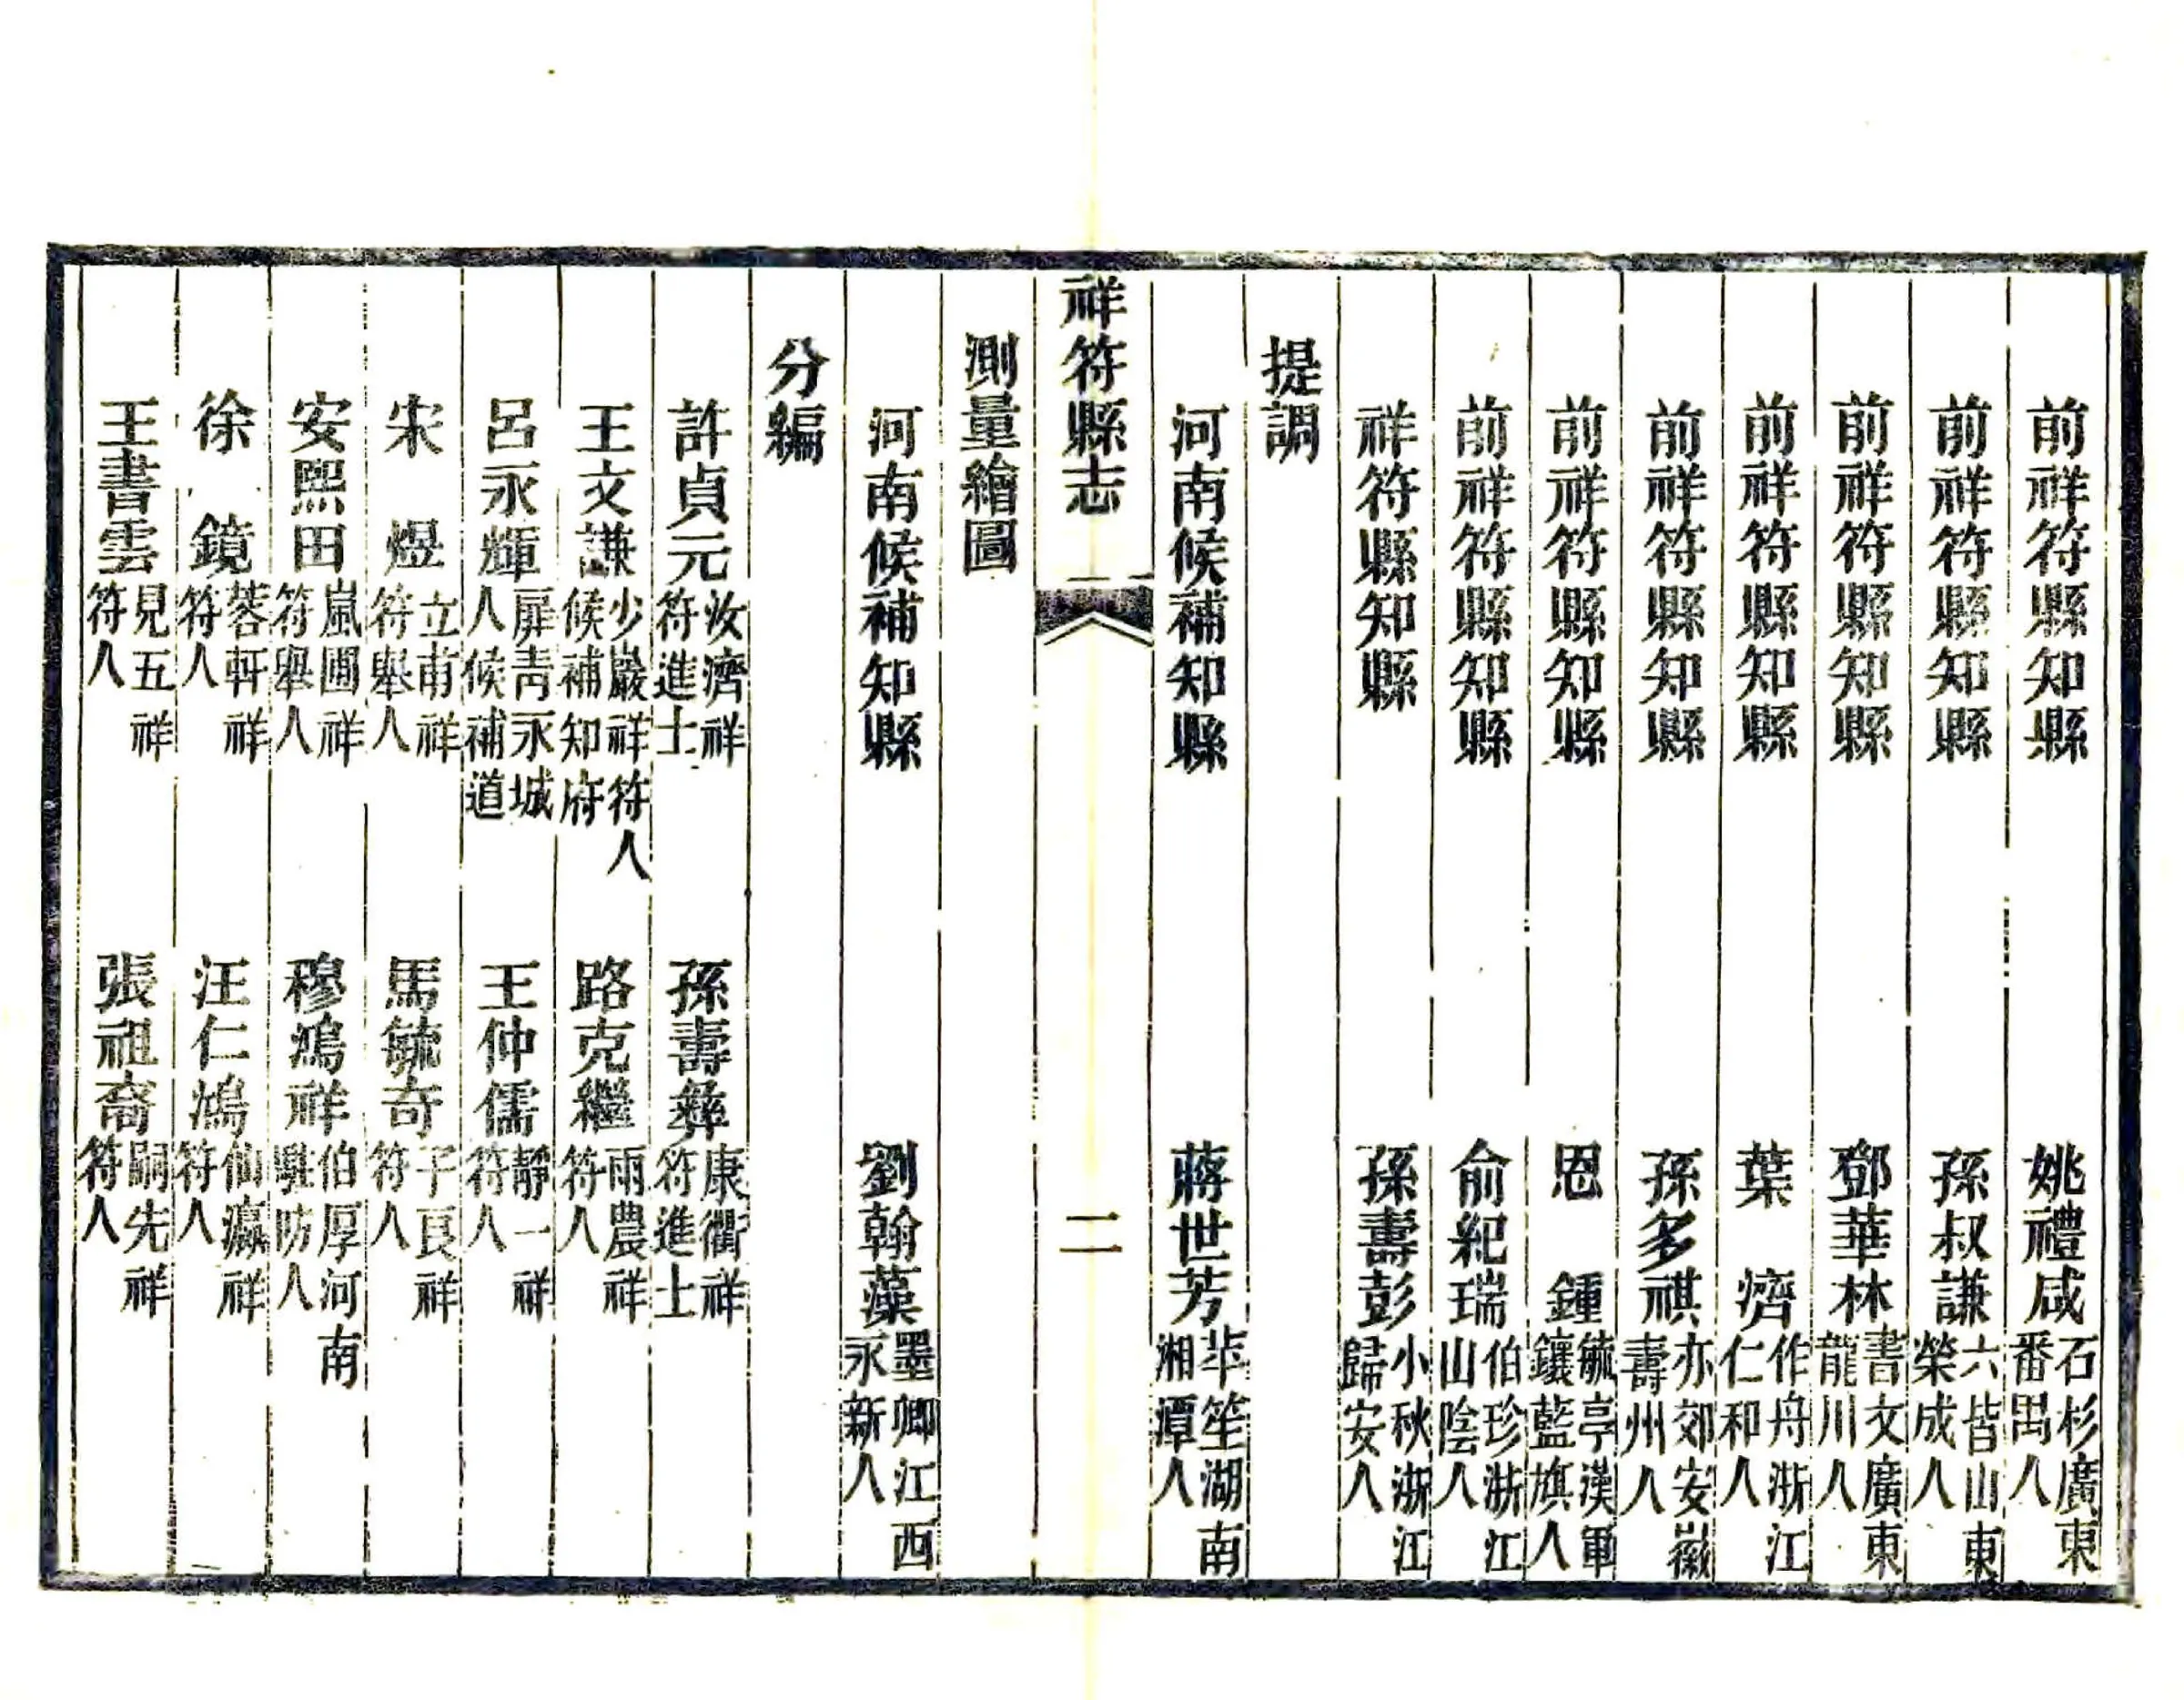 前祥符縣知縣　姚禮咸石杉廣東番禺人
前祥符縣知縣　孫叔謙六皆山東榮成人
前祥符縣知縣　鄧華林書文廣東龍川人
前祥符縣知縣　葉　濟作舟浙江仁和人
前祥符縣知縣　孫多祺亦郊安徽壽州人
前祥符縣知縣　恩　鍾毓亭漢軍鑲藍旗人
前祥符縣知縣　俞紀瑞伯珍浙江山陰人
祥符縣知縣　孫壽彭小秋浙江歸安人
提調
河南候補知縣　蔣世芳笙湖南湘潭人
祥符縣志　二
測量繪圖
河南候補知縣　劉翰藻墨卿江西永新人
分編
許貞元汝濟祥符進士　孫壽彝康衢祥符進士
王文謙少巖祥符人候補知府　路克繼雨農祥符人
呂永輝屏青永城人候補道　王仲儒靜一祥符人
宋　煜立甫祥符舉人　馬毓奇子良祥符人
安熙田嵐圃祥符舉人　穆鴻祥伯厚河南駐防人
徐　鏡蓉軒祥符人　汪仁鴻仙瀛祥符人
王書雲見五祥符人　張祖裔嗣先祥符人